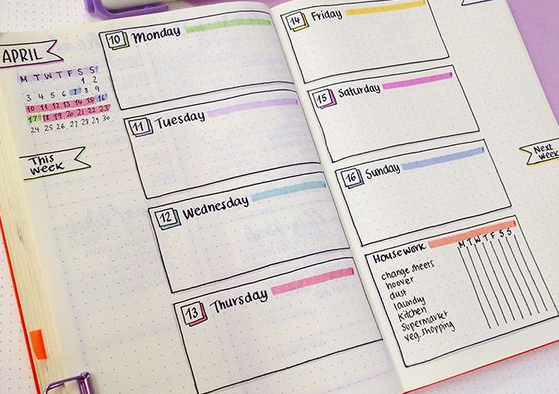 APRIL
M T W T F S S
1 2
3 4 5 6 7 8 9
10 11 12 13 14 15 16
17 18 19 20 21 22 23
24 25 26 27 28 29 30
This
week
10 Monday
11 Tuesday
12 Wednesday
13 Thursday
14 Friday
15 Saturday
16 Sunday
Next
week
Housework
M T W T F S S
change sheets
hoover
dust
laundry
Kitchen
Supermarket
veg. shopping